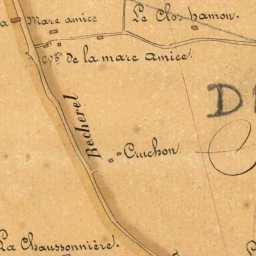 Mare amice
Le Clos hamon.
de la mare amice
D
Becherel
Cruchon
La Chaussonnière.